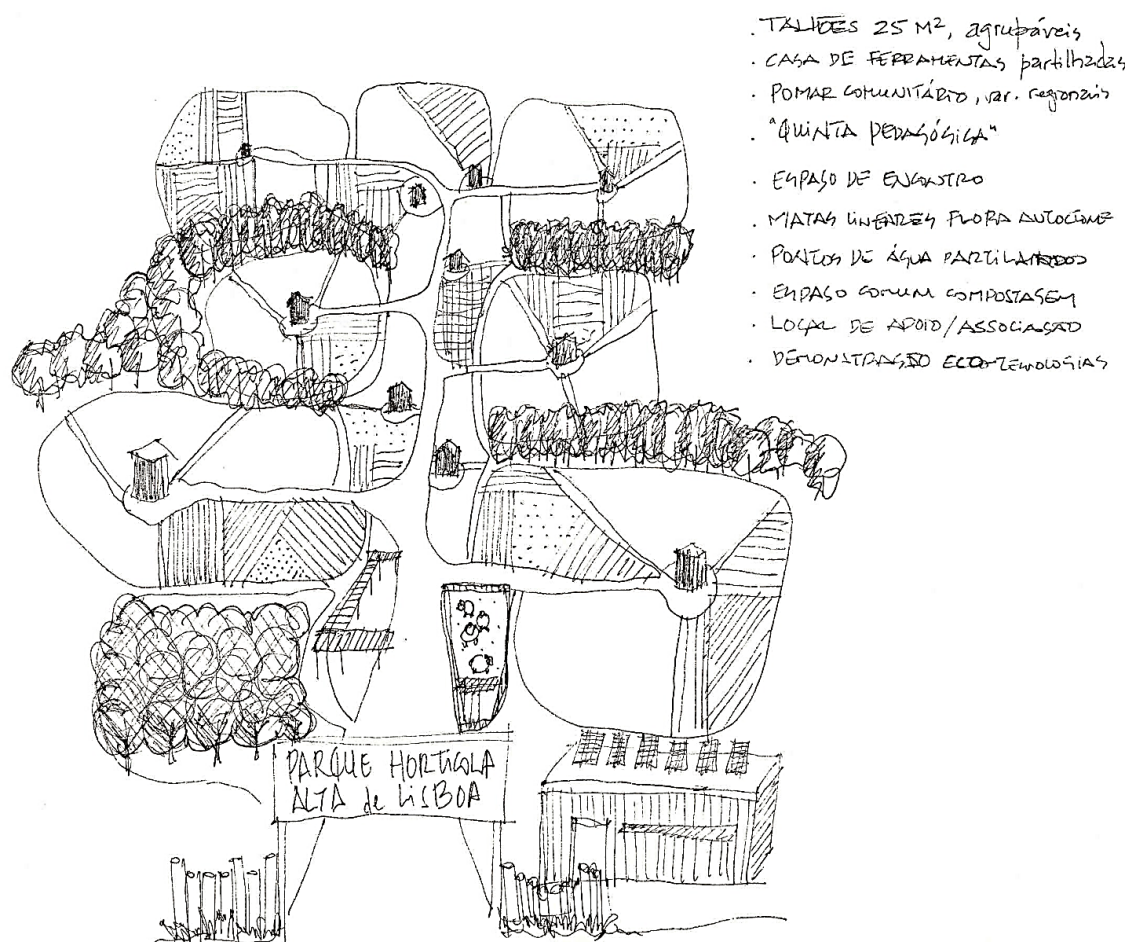 . TALHÕES 25 M², agrupáveis
. CASA DE FERRAMENTAS partilhadas
. POMAR COMUNITÁRIO, var. regionais
. "QUINTA PEDAGÓGICA"
. ESPAÇO DE ENCONTRO
. MATAS LINEARES FLORA AUTOCTONE
. PONTOS DE ÁGUA PARTILHADOS
. ESPAÇO COMUM COMPOSTAGEM
. LOCAL DE APOIO/ASSOCIAÇÃO
. DEMONSTRAÇÃO ECO-TECNOLOGIAS
PARQUE HORTÍCOLA
ALTA de LISBOA